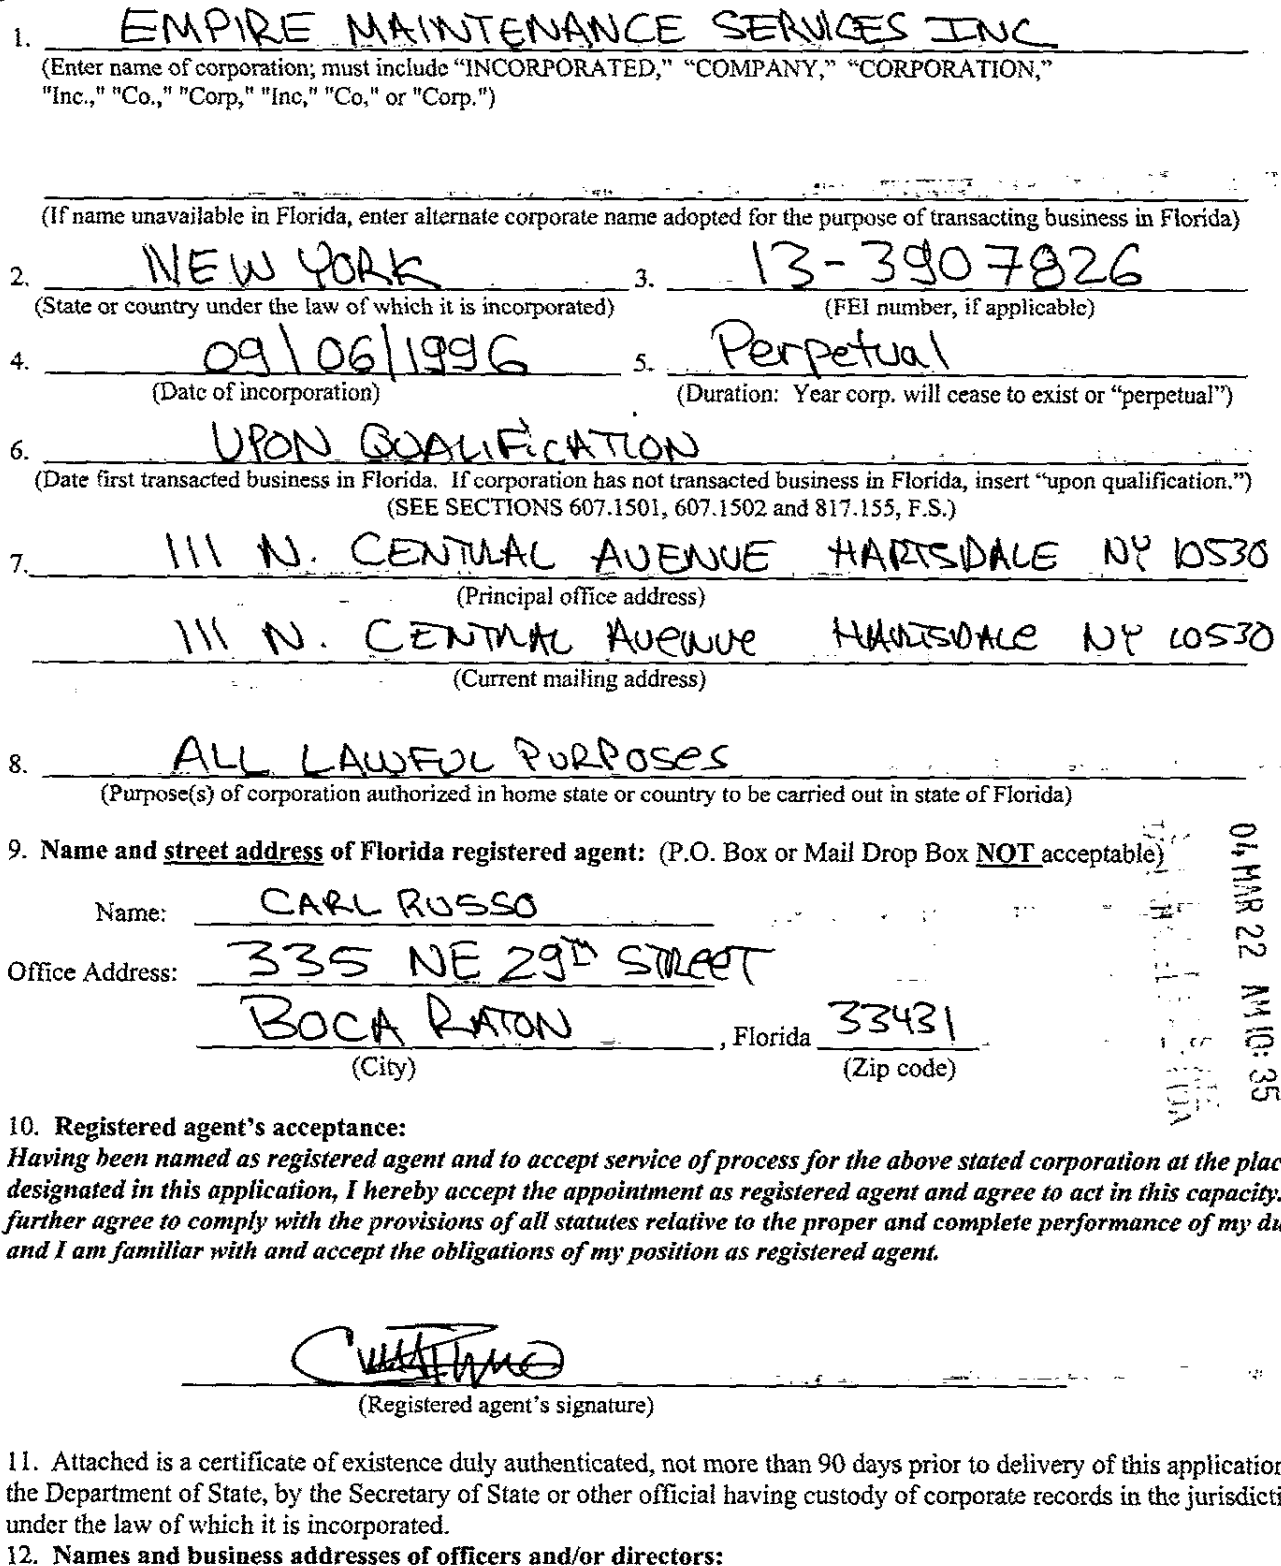 1. EMPIRE MAINTENANCE SERVICES INC
(Enter name of corporation; must include “INCORPORATED,” “COMPANY,” “CORPORATION,”
"Inc.," "Co.," "Corp," "Inc," "Co," or "Corp.")
(If name unavailable in Florida, enter alternate corporate name adopted for the purpose of transacting business in Florida)
2. NEW YORK 3. 13-3907826
(State or country under the law of which it is incorporated) (FEI number, if applicable)
4. 09\06/1996 5. Perpetual
(Date of incorporation) (Duration: Year corp. will cease to exist or “perpetual”)
6. UPON QUALIFICATION
(Date first transacted business in Florida. If corporation has not transacted business in Florida, insert “upon qualification.”)
(SEE SECTIONS 607.1501, 607.1502 and 817.155, F.S.)
7. 111 N. CENTRAL AVENUE HARTSDALE NY 10530
(Principal office address)
111 N. CENTRAL AVENUE HARTSDALE NY 10530
(Current mailing address)
8. ALL LAWFUL PURPOSES
(Purpose(s) of corporation authorized in home state or country to be carried out in state of Florida)
9. Name and street address of Florida registered agent: (P.O. Box or Mail Drop Box NOT acceptable)
Name: CARL RUSSO
Office Address: 335 NE 29TH STREET
BOCA RATON, Florida 33431
(City) (Zip code)
04 MAR 22 AM 10:35
10. Registered agent's acceptance:
Having been named as registered agent and to accept service of process for the above stated corporation at the plac
designated in this application, I hereby accept the appointment as registered agent and agree to act in this capacity.
further agree to comply with the provisions of all statutes relative to the proper and complete performance of my du
and I am familiar with and accept the obligations of my position as registered agent.
(Registered agent's signature)
11. Attached is a certificate of existence duly authenticated, not more than 90 days prior to delivery of this application
the Department of State, by the Secretary of State or other official having custody of corporate records in the jurisdicti
under the law of which it is incorporated.
12. Names and business addresses of officers and/or directors: